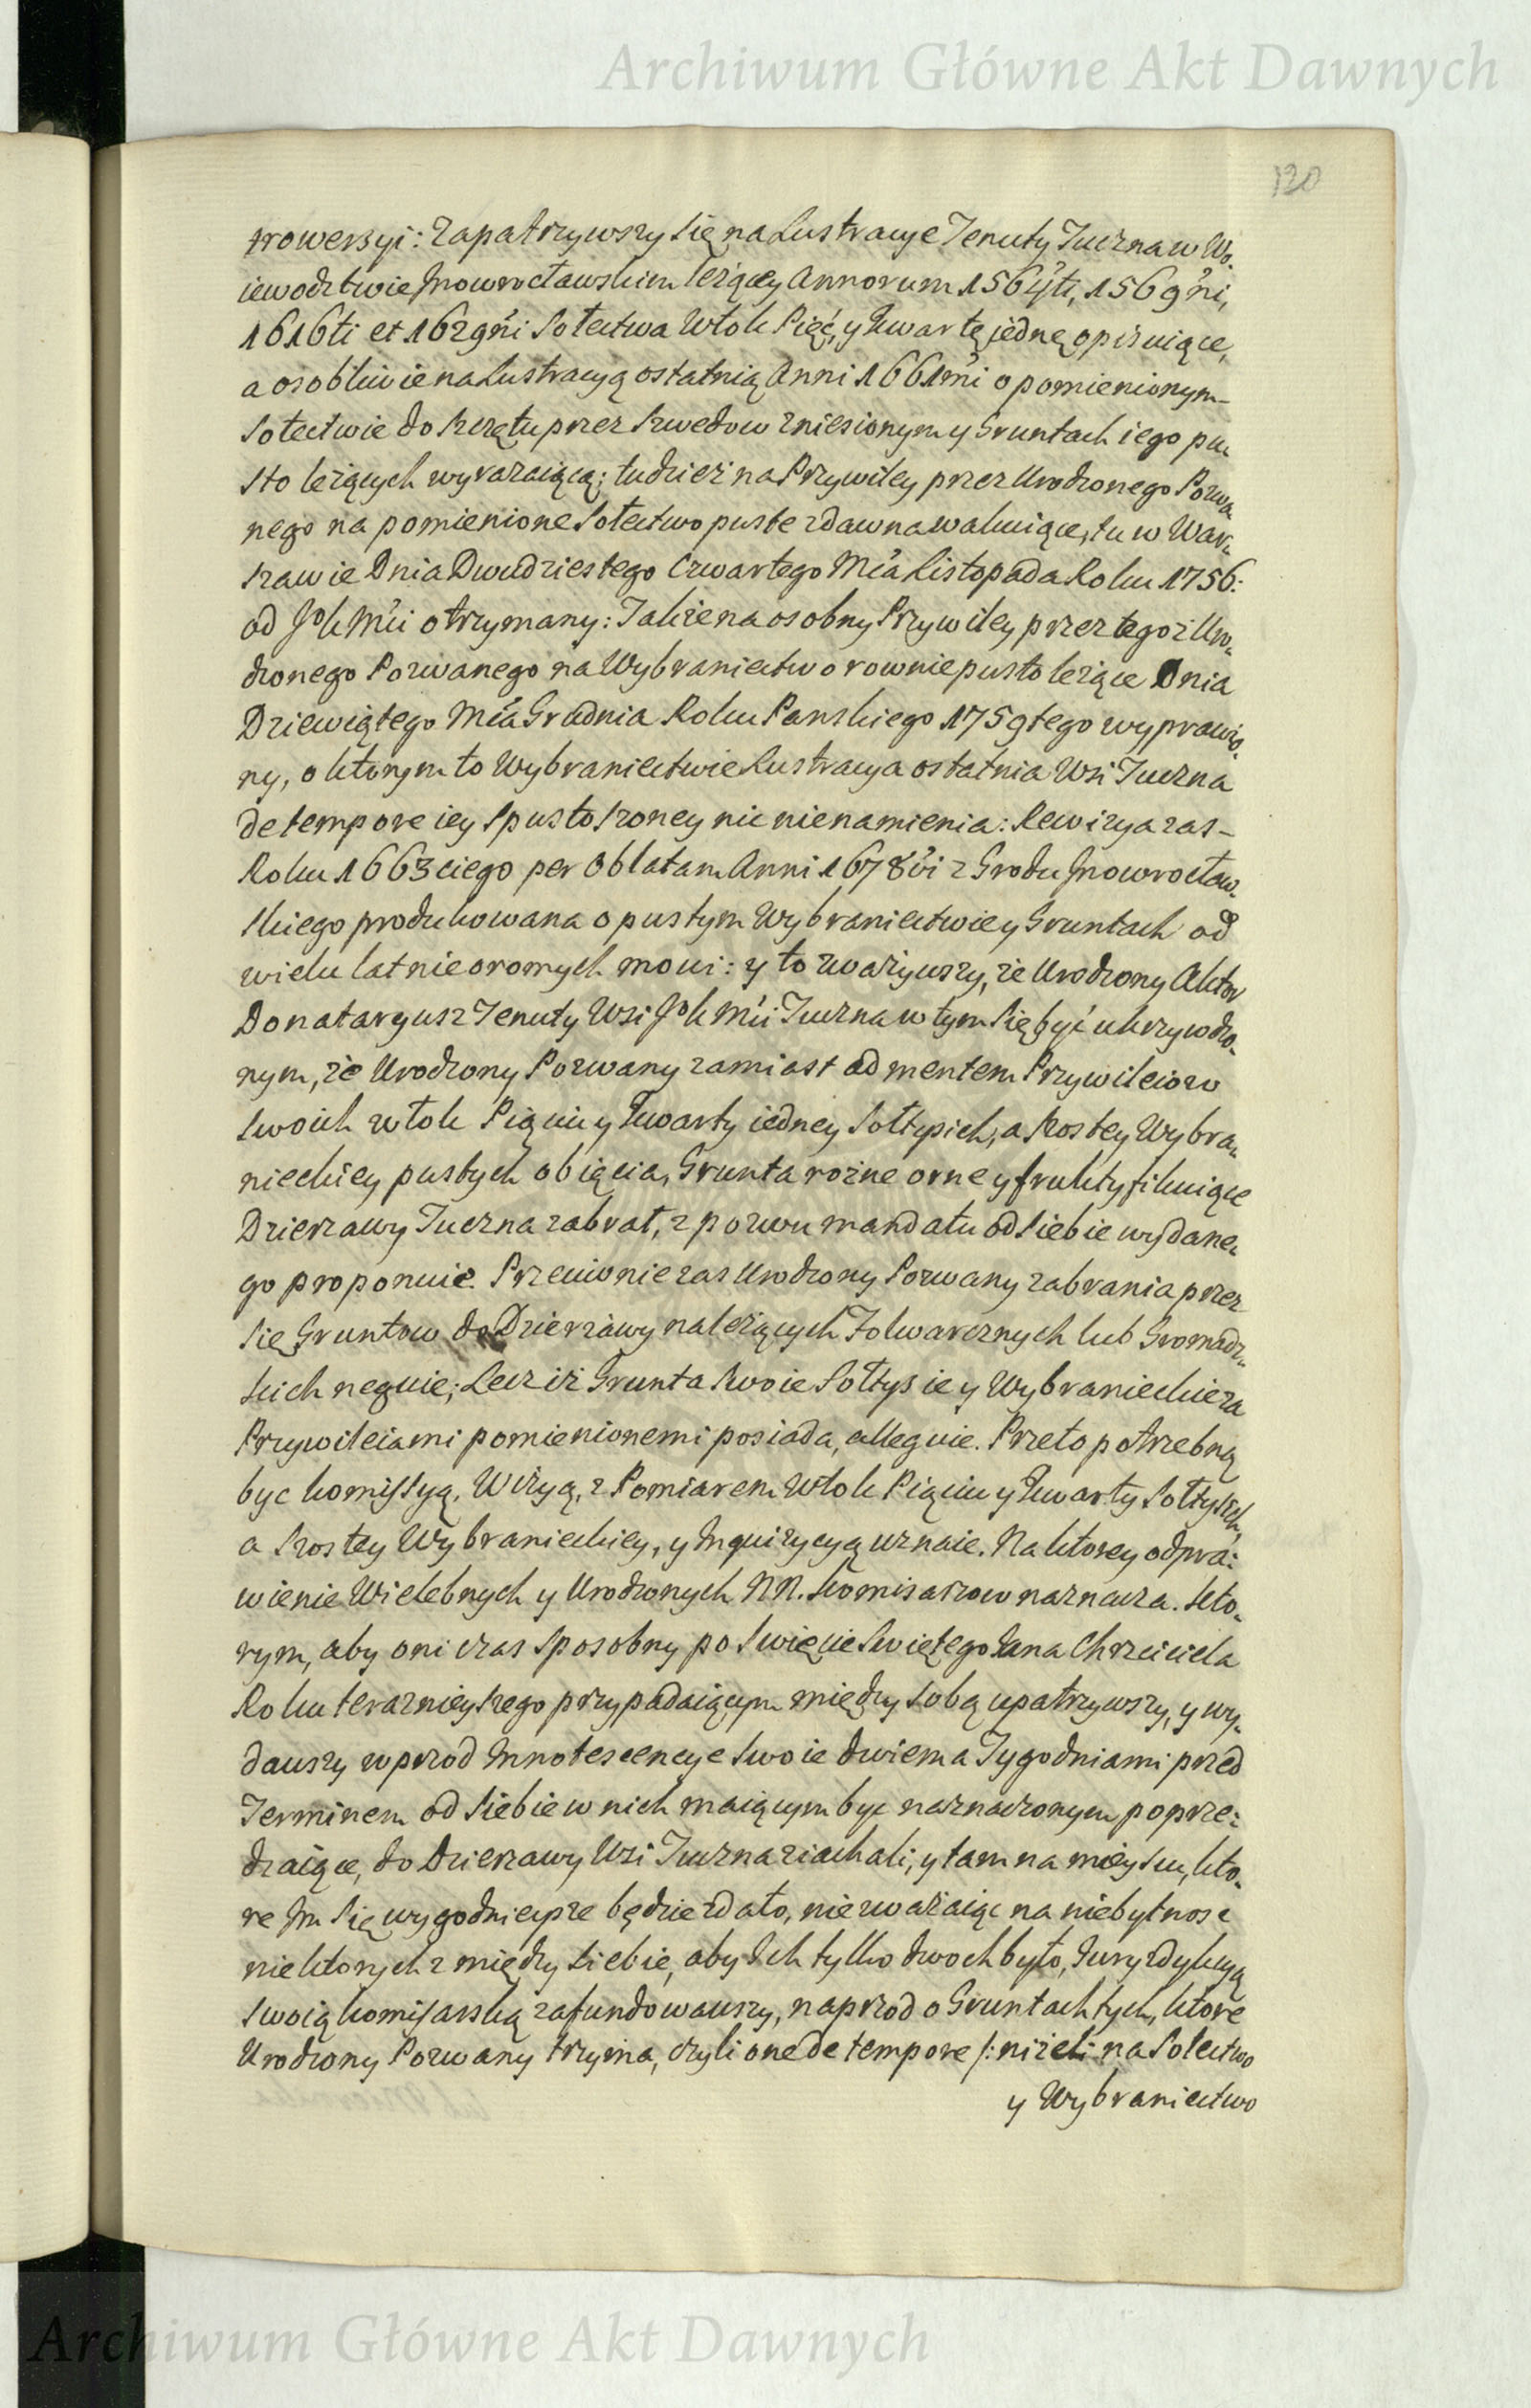 Archiwum Główne Akt Dawnych
120
trowersyi: Zapatrzywszy się na Lustracye Tenuty Tuczna w Wo-
iewodztwie Inowrocławskim leżącey Annorum 1564ti, 1569ni,
1616ti et 1629ni Sołectwa Włok Pięć, y Kwartę iedną opisuiące,
a osobliwie na Lustracyą ostatnią Anni 1661mi o pomienionym
Sołectwie do szczętu przez Szwedow zniesionym y Gruntach iego pu-
sto leżących wyrazaiącą; tudzież na Przywiley przez Urodzonego Pozwa-
nego na pomienione Sołectwo puste zdawna wakuiące, tu w War-
szawie Dnia Dwudziestego Czwartego Mca Listopada Roku 1756:
od JoKMci otrzymany: Takze na osobny Przywiley przez tegoż Uro-
dzonego Pozwanego na Wybraniectwo rownie pusto leżące Dnia
Dziewiątego Mca Grudnia Roku Panskiego 1759tego wyprawio-
ny, o ktorym to Wybraniectwie Lustracya ostatnia Wsi Tuczna
de tempore iey spustoszoney nic nie namienia: Rewizya zas
Roku 1663ciego per Oblatam Anni 1678vi z Grodu Inowrocław-
skiego produkowana o pustym Wybraniectwie y Gruntach od
wielu lat nie oromych mowi: y to zważywszy, że Urodzony Aktor
Donataryusz Tenuty Wsi JoKMci Tuczna w tym się być ukrzywdzo-
nym, że Urodzony Pozwany zamiast ad mentem Przywileiow
swoich włok Piąciu y Kwarty iedney Sołtysich, a szostey Wybra-
nieckiey pustych obięcia, Grunta rożne orne y fruktyfikuiące
Dzierzawy Tuczna zabrał, z pozwu mandatu od siebie wydane-
go proponuie. Przeciwnie zas Urodzony Pozwany zabrania przez
się Gruntow do Dzierżawy należących Folwarcznych lub Gromadz-
kich neguie; Lecz iż Grunta swoie Sołtysie y Wybranieckie za
Przywileiami pomienionemi posiada, alleguie. Przeto potrzebną
byc komissyą, Wizyą, z Pomiarem Włok Piąciu y Kwarty Sołtysich,
a Szostey Wybranieckiey, y Inquizycyą uznaie. Na ktorey odpra-
wienie Wielebnych y Urodzonych NN. Komisarzow naznacza. Kto-
rym, aby oni czas sposobny po Swięcie Swiętego Jana Chrzciciela
Roku terazniejszego przypadaiącym między sobą upatrzywszy, y wy-
dawszy wprzod Innotescencye swoie dwiema Tygodniami przed
Terminem od siebie w nich maiącym być naznaczonym poprze-
dzaiące, do Dzierzawy Wsi Tuczna ziachali, y tam na mieyscu, kto-
re Im się wygodnieysze będzie zdało, nie zważaiąc na niebytnosc
niektorych z między siebie, aby Ich tylko dwoch było, Juryzdykcyą
swoią komisarską zafundowawszy, naprzod o Gruntach tych, ktore
Urodzony Pozwany trzyma, czyli one de tempore /: niżeli na Sołectwo
y Wybraniectwo
Archiwum Główne Akt Dawnych